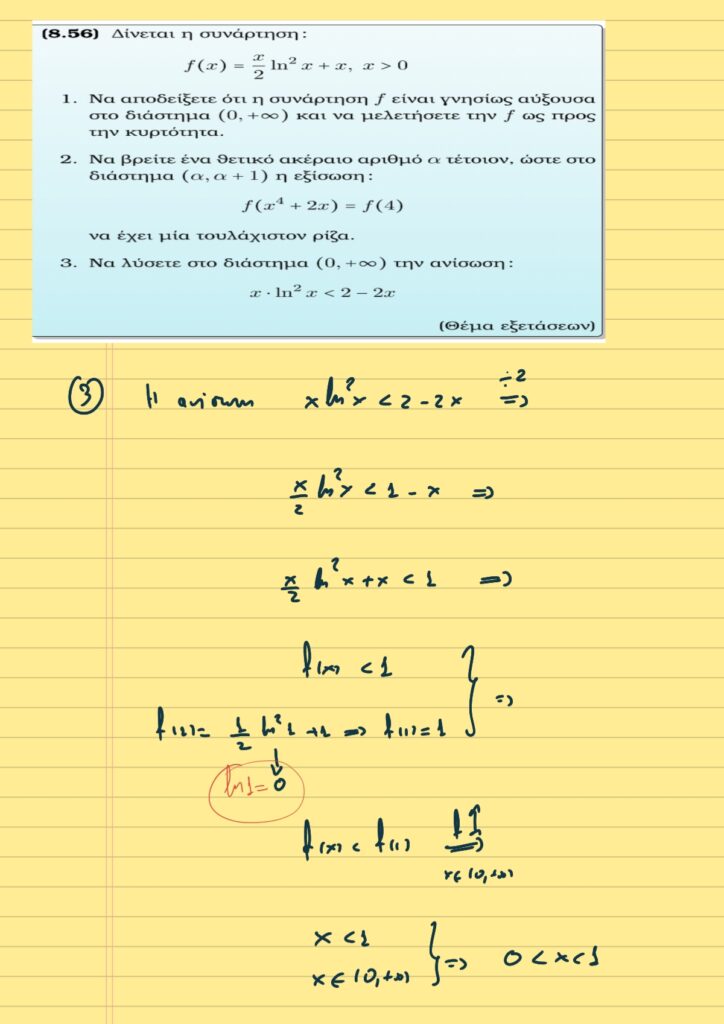 (8.56) Δίνεται η συνάρτηση:
f(x) = x/2 ln² x + x, x > 0
1. Να αποδείξετε ότι η συνάρτηση f είναι γνησίως αύξουσα
στο διάστημα (0, +∞) και να μελετήσετε την f ως προς
την κυρτότητα.
2. Να βρείτε ένα θετικό ακέραιο αριθμό α τέτοιον, ώστε στο
διάστημα (α, α + 1) η εξίσωση:
f(x⁴ + 2x) = f(4)
να έχει μία τουλάχιστον ρίζα.
3. Να λύσετε στο διάστημα (0, +∞) την ανίσωση:
x · ln² x < 2 − 2x
(Θέμα εξετάσεων)
③ Η ανίσωση x ln²x < 2 - 2x ÷2 ⇒
x/2 ln²x < 1 - x ⇒
x/2 ln²x + x < 1 ⇒
f(x) < 1
f(1) = 1/2 ln²1 + 1 ⇒ f(1) = 1 } ⇒
ln1 = 0
f(x) < f(1) f↑ ⇒
x∈(0,+∞)
x < 1
x ∈ (0,+∞) } ⇒ 0 < x < 1